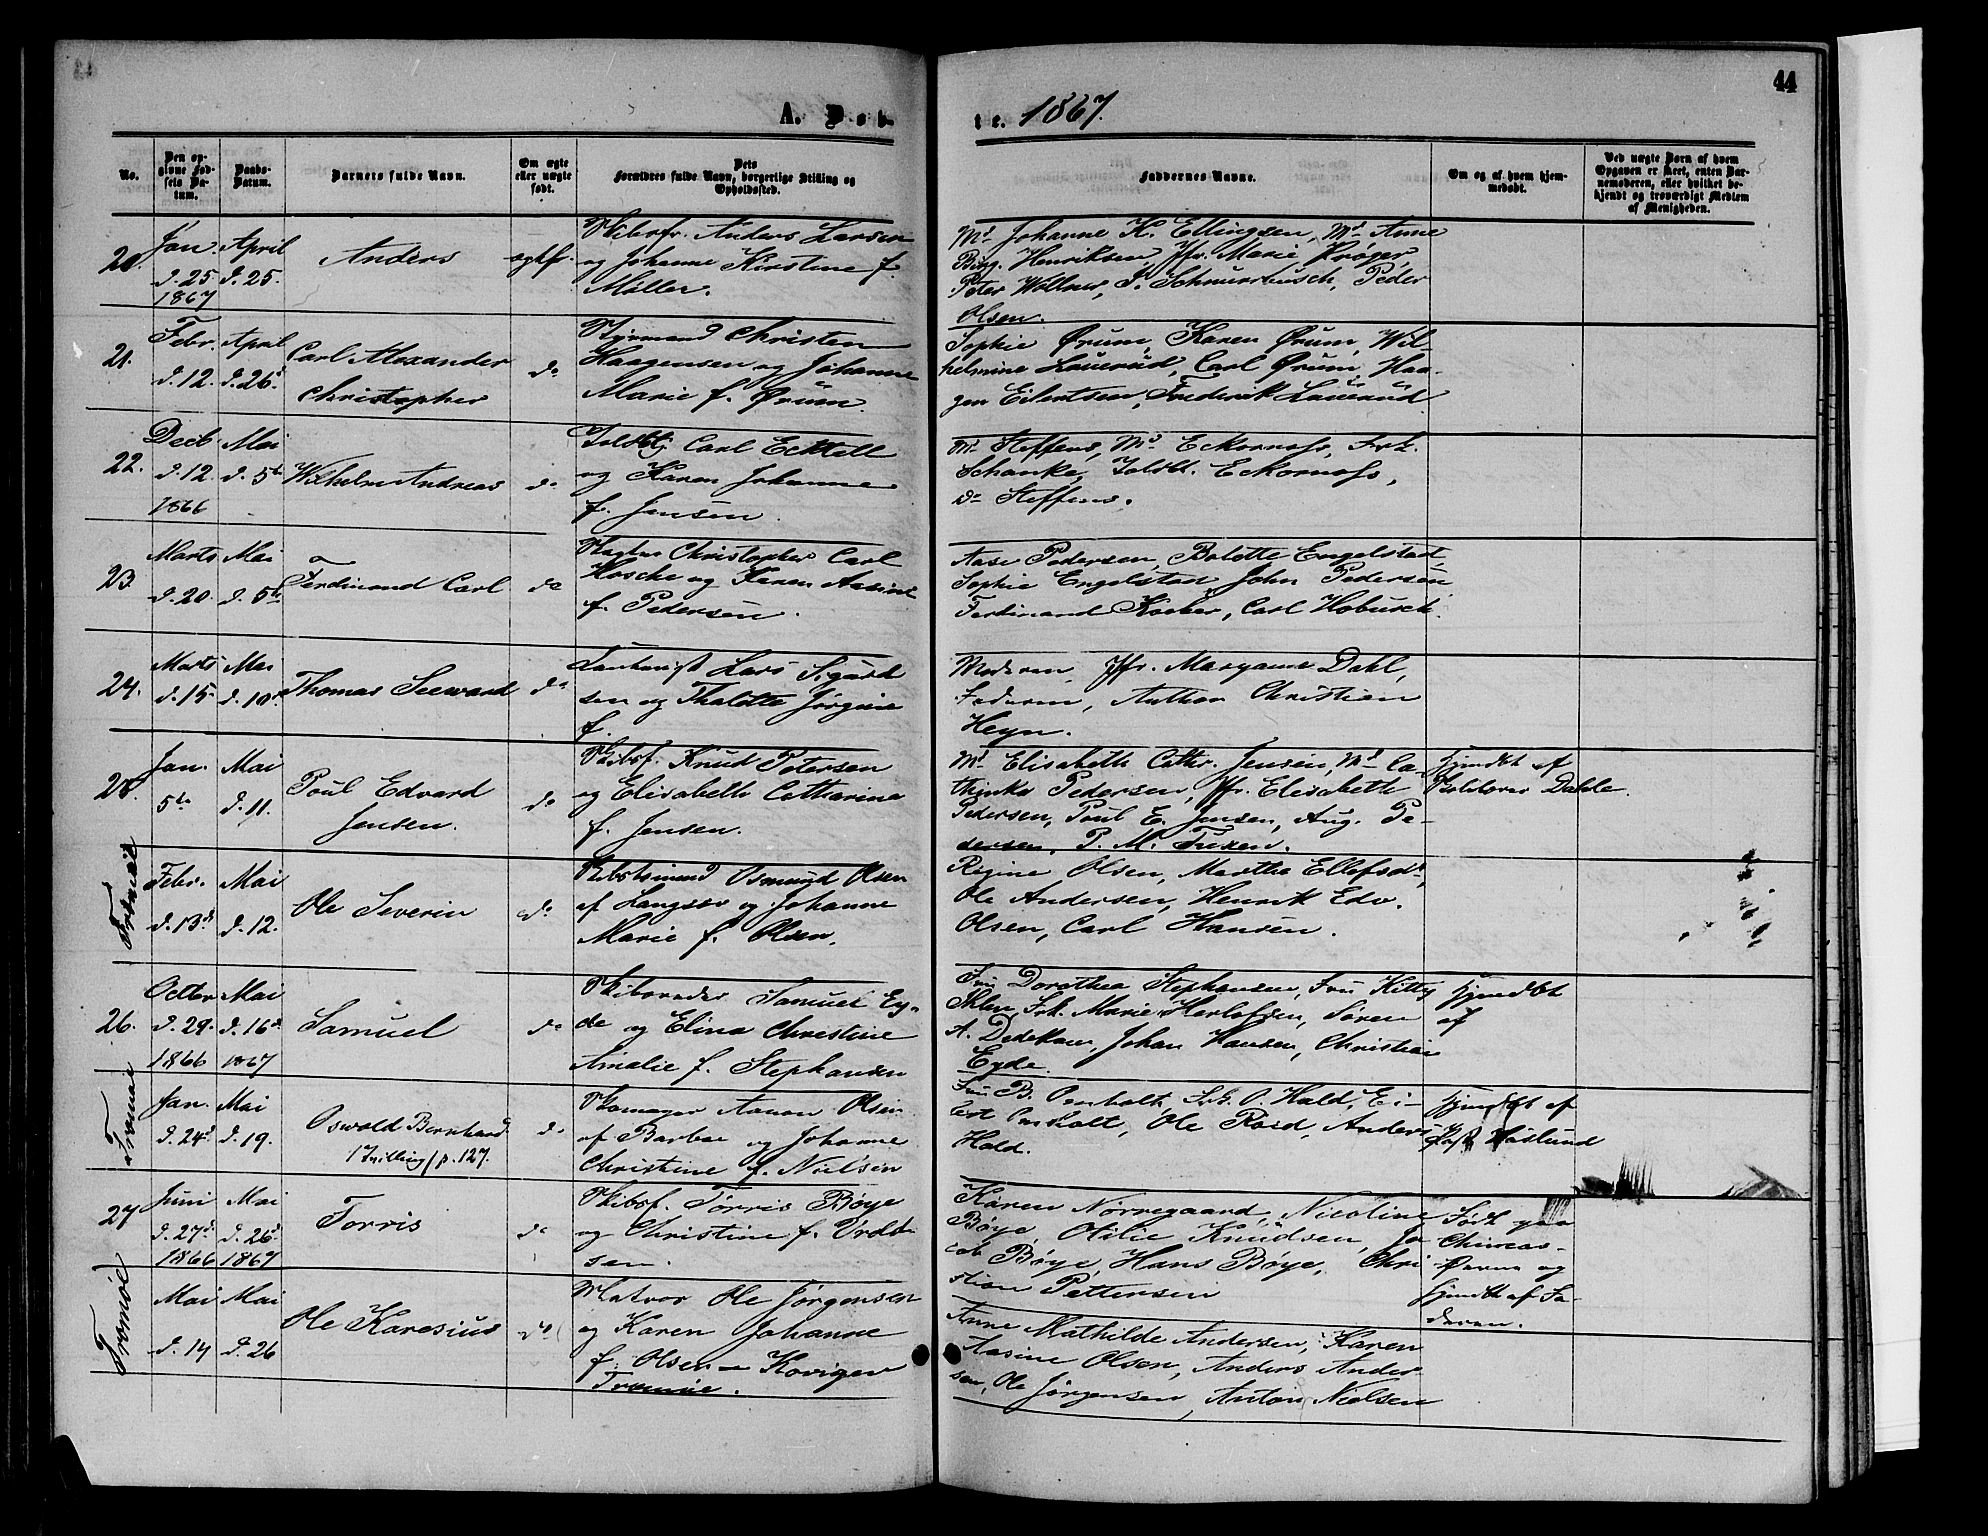 44
A. Døb-
te. 1867.
No.
Den op-
givne Fød-
sels Da-
tum.
Daabs-
Datum.
Barnets fulde Navn.
Om ægte
eller uægte
født.
Dets
Forældres fulde Navn, borgerlige Stilling og
Opholdssted.
Faddernes Navne.
Om og af hvem hjem-
medøbt.
Ved uægte Børn af hvem
Opgaven er skeet, enten Bar-
nemoderen, eller hvilket be-
kjendt og troværdigt Medlem
af Menigheden.
20.
Jan.
d. 25
1867
April
d. 25.
Anders
ægtf.
Skibsfr. Anders Larsen
og Johanne Kirstine f.
Møller.
Md. Johanne K. Ellingsen, Md. Anne
Birg. Henriksen, Jfr. Marie Krøger
Peter Wollner, Schnurrbusch, Peder
Olsen.
21.
Febr.
d. 12.
April
d. 26d
Carl Alexander
Christopher
do
Styrmand Christen
Haagensen og Johanne
Marie f. Ørum.
Sophie Ørum, Karen Ørum, Wil-
helmine Lauerud, Carl Ørum, Haa-
gen Eilertsen, Frederik Lauerud
22.
Decb.
d. 12.
1866
Mai
d. 5te
Wilhelm Andreas
do
Toldbtj. Carl Ecktell
og Karen Johanne
f. Jensen.
Md. Steffens, Md. Eckornass, Frk.
Schanke, Toldbt. Eckornass,
do Steffens.
23
Marts
d. 20.
Mai
d. 5te
Ferdinand Carl
do
Christopher Carl
Kosche og Karen Aasine
f. Pedersen.
Aase Pedersen, Bolette Engelstad,
Sophie Engelstad, John Pedersen
Ferdinand Koche, Carl Hobusch.
24.
Marts
d. 15
Mai
d. 10de
Thomas Seeward
do
Lars Sigurd
sen og Thalette Jørgine
f.
Moderen, Jfr. Margarne Dahl,
Faderen, Anthon Christian
Heyn.
25.
Jan.
5te
Mai
d. 11.
Poul Edvard
Jensen.
do
Skibsf. Knud Petersen
og Elisabeth Catharine
f. Jensen.
Md. Elisabeth Cathr. Jensen, Md. Ca-
thinka Pedersen, Jfr. Elisabeth
Pedersen, Poul E. Jensen, Aug. Pe-
dersen, P. M. Tuxen.
hjemdøbt af
Dahle.
Tromøe
Febr.
d. 13d
Mai
d. 12.
Ole Severin
do
Skibstmmd Osmund Olsen
af Langsæv og Johanne
Marie f. Olsen.
Regine Olsen, Marthe Ellefsdt,
Ole Andersen, Henrik Edv.
Olsen, Carl Hansen.
26.
Octbr
d. 29.
1866
Mai
d. 16d
1867
Samuel
do
Skibsreder Samuel Ey-
de og Elina Christine
Amalie f. Stephansen
Fru Dorothea Stephansen, Fru Kitty
Ihlen, Frk. Marie Herlofsen, Søren
A. Dedekam, Johan Hansen, Christian
Eyde.
hjemdøbt
af
Tromøe
Jan.
d. 24d
Mai
d. 19.
Oswald Bernhard
1 Tvilling/p. 127.
do
Skomager Aanon Olsen
af Barbue og Johanne
Christine f. Nielsen
Fru B. Omholt, Frk. O. Hald, Ei-
lert Omholt, Ole Rosd, Anders
Hald.
hjemdøbt af
Høslund
27
Juni
d. 27d
1866
Mai
d. 26d
1867
Torris
do
Skibsf. Tørris Bøye
og Christine f. Vrold-
sen.
Karen Nørregaard, Nicoline
Bøye, Otilie Knudsen, Ja-
cob Bøye, Hans Bøye, Chri
stian Pettersen
Født paa
Chincas-
Øerne og
hjemdt. af Fa-
deren.
Tromøe
Mai
d. 14
Mai
d. 26
Ole Karesius
do
Matros Ole Jørgensen
og Karen Johanne
f. Olsen – Kovigen
Tromøe.
Anne Mathilde Andersen, Karen
Aasine Olsen, Anders Ander-
sen, Ole Jørgensen, Anton Nielsen